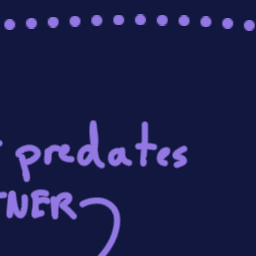 predates
TNER